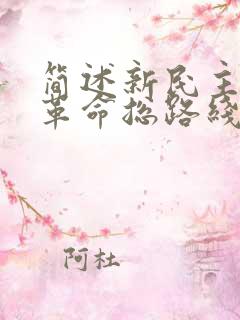 简述新民主
革命总路线
阿杜